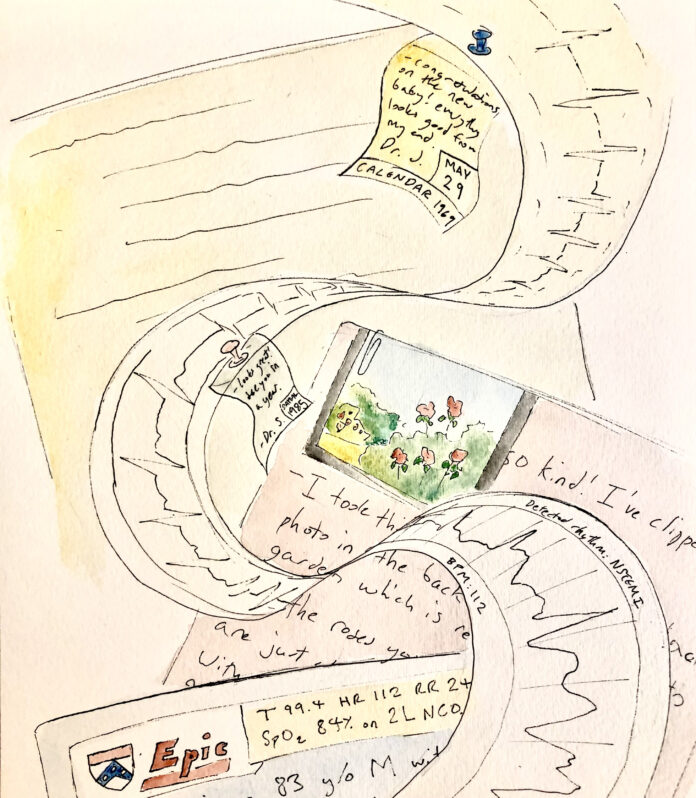 - congratulations
on the new
baby! everything
looks good from
my end.
Dr. J.
MAY
29
CALENDAR 1969
- looks great!
see you in
a year.
- Dr. S.
1985
so kind! I've clippe
- I took thi
photo in the back
garden which is re
the roses yo
are just
with
Detected rhythm: NSTEMI
BPM: 112
Epic
T 99.4 HR 112 RR 24
SpO2 84% on 2L NCO2
83 y/o M wit